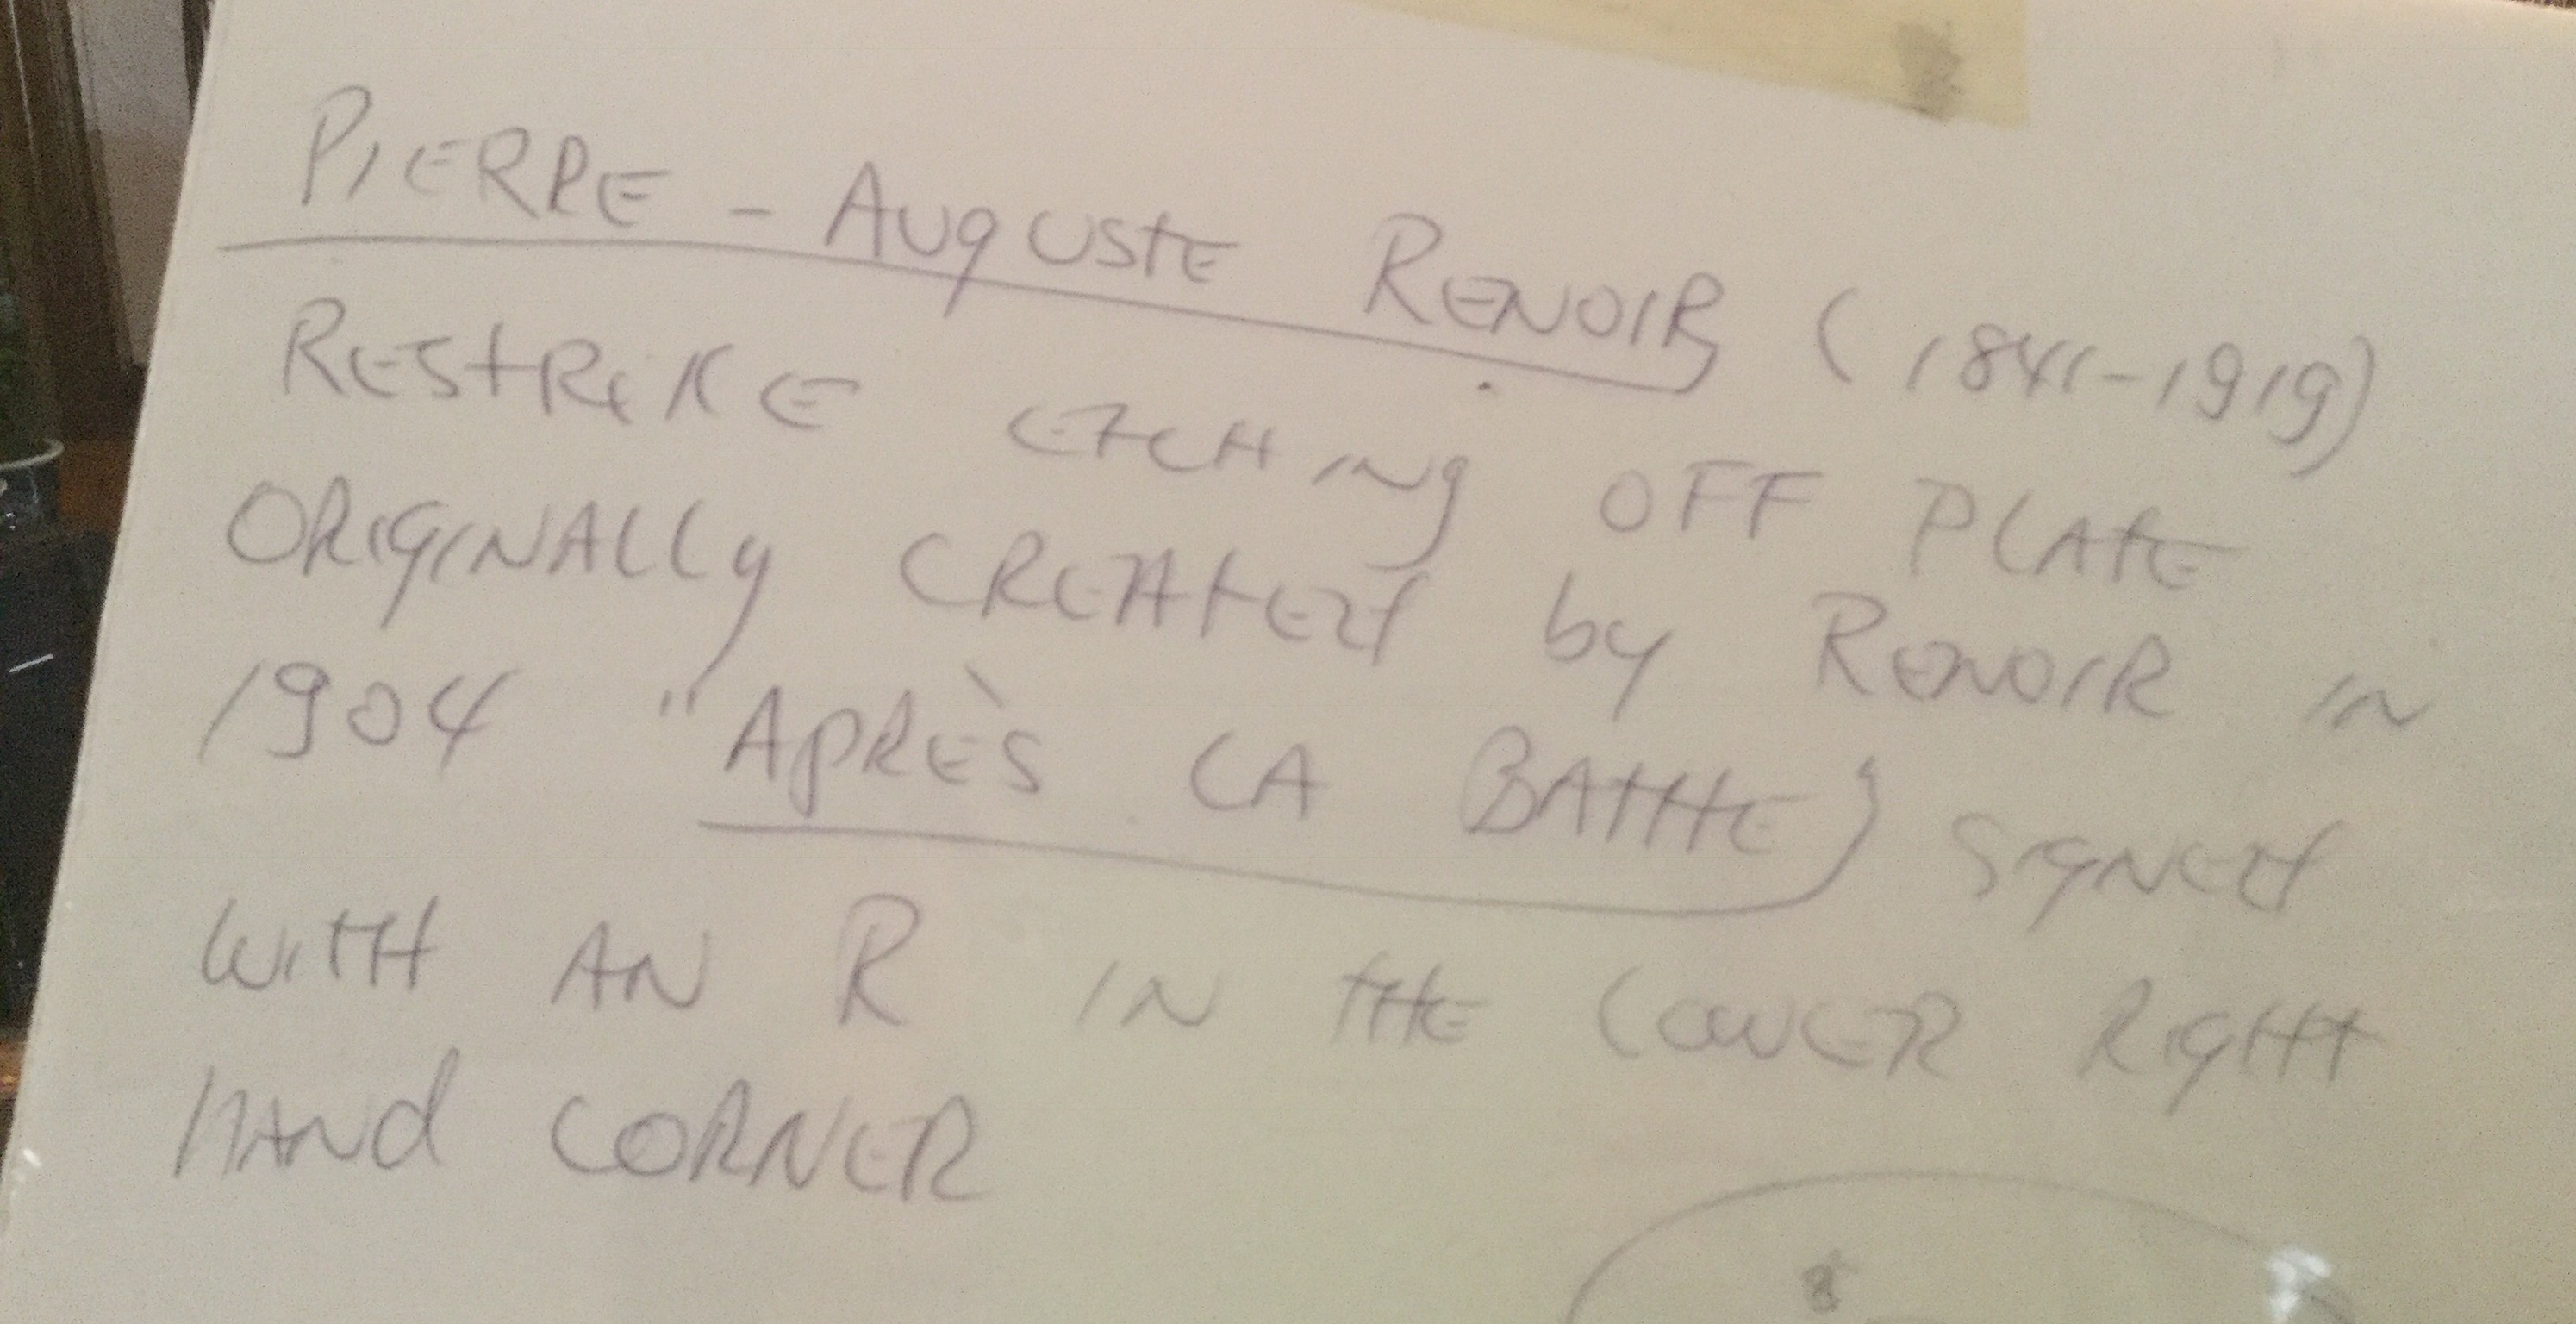 PIERRE - AUGUSTE RENOIR (1841-1919)
RESTRIKE ETCHING OFF PLATE
ORIGINALLY CREATED by RENOIR IN
1904 "APRÈS LA BATHE) SIGNED
WITH AN R IN THE LOWER RIGHT
HAND CORNER
8